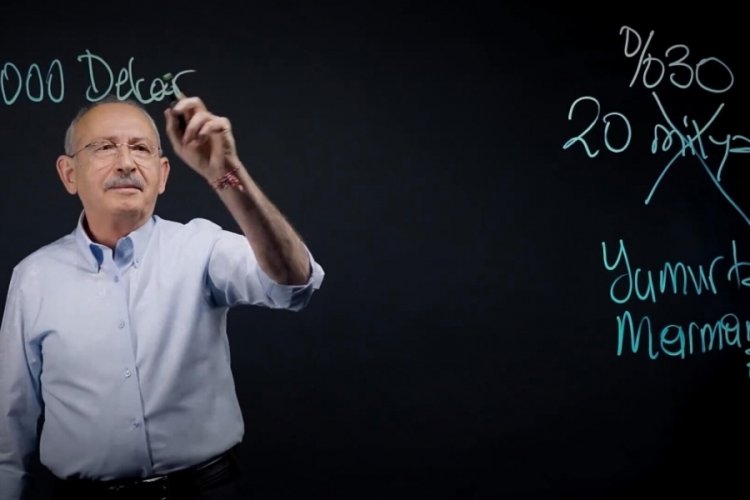 000 Dekar
%30
20 milya
Yumurt
Marma